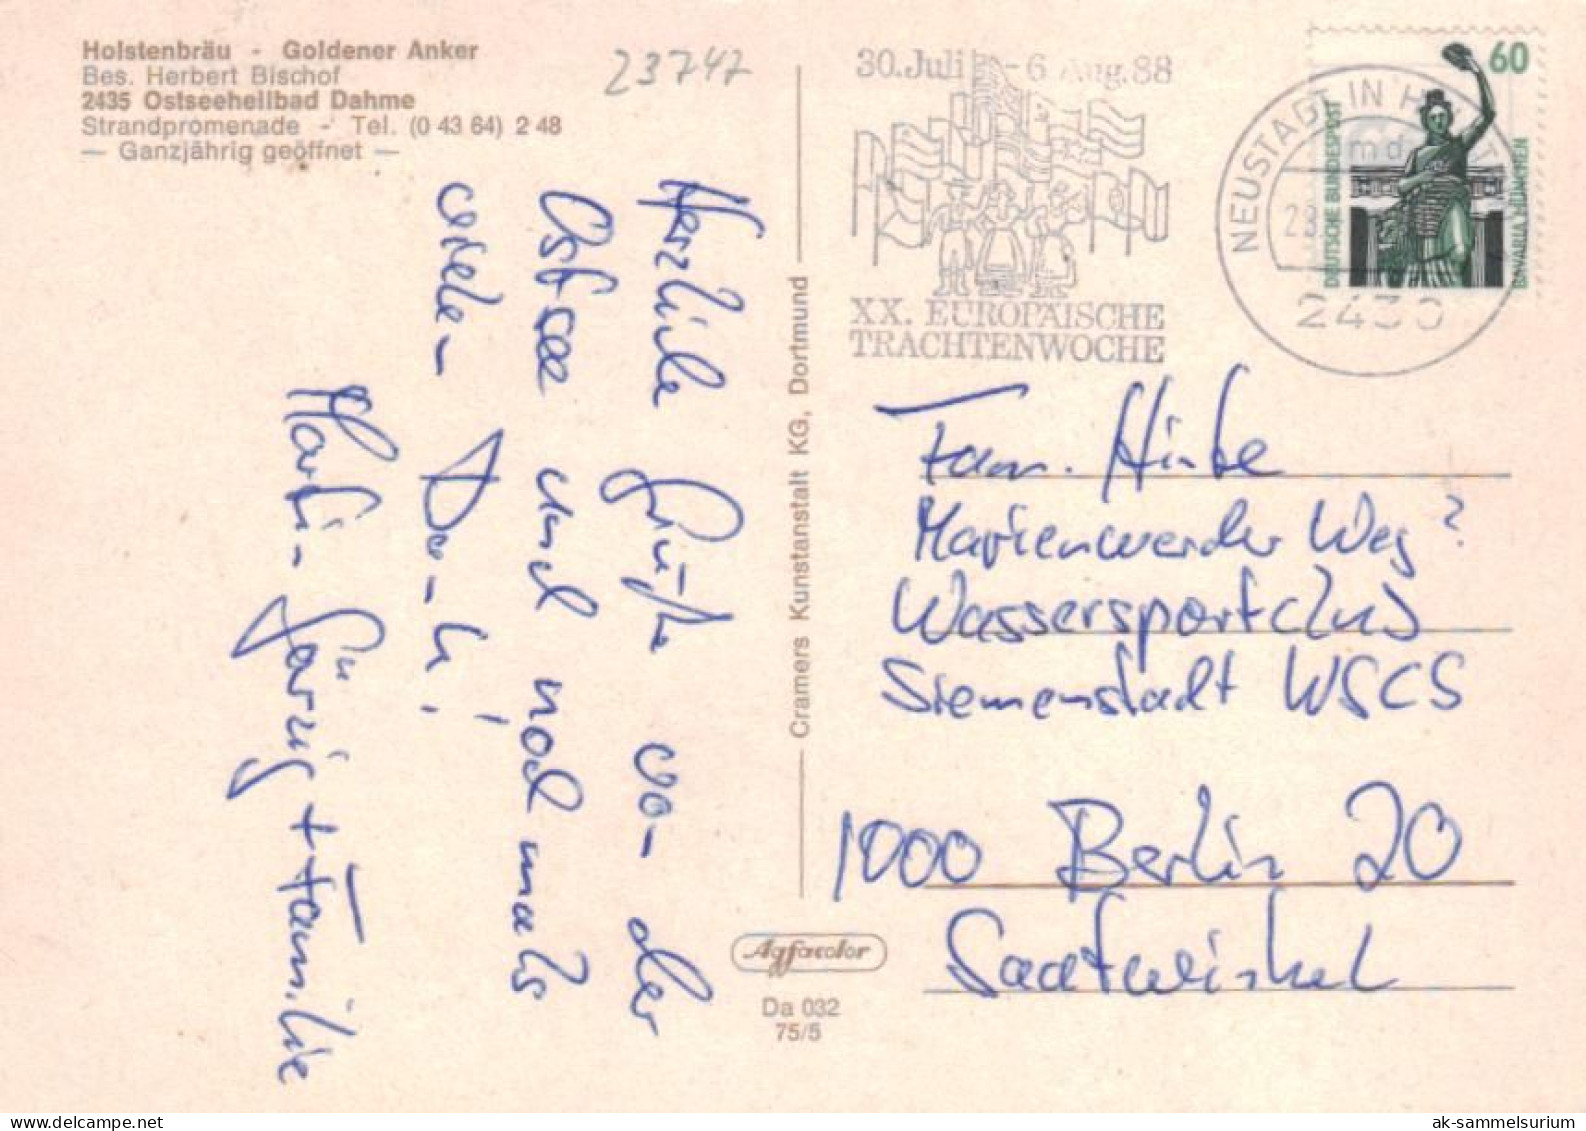 Holstenbräu - Goldener Anker
Bes. Herbert Bischof
2435 Ostseeheilbad Dahme
Strandpromenade - Tel. (0 43 64) 2 48
— Ganzjährig geöffnet —
23747
30. Juli - 6 Aug. 88
XX. EUROPÄISCHE
TRACHTENWOCHE
NEUSTADT IN H
2430
60
DEUTSCHE BUNDESPOST
BAVARIA MÜNCHEN
Herzliche Grüße von der
Ostsee und nochmals
vielen Dank!
Familie
Cramers Kunstanstalt KG, Dortmund
Fam. Hinke
Marienwerder Weg ?
Wassersportclub
Siemenstadt WSCS
1000 Berlin 20
Saatwinkel
Agfacolor
Da 032
75/5
delcampe.net
ak-sammelsurium